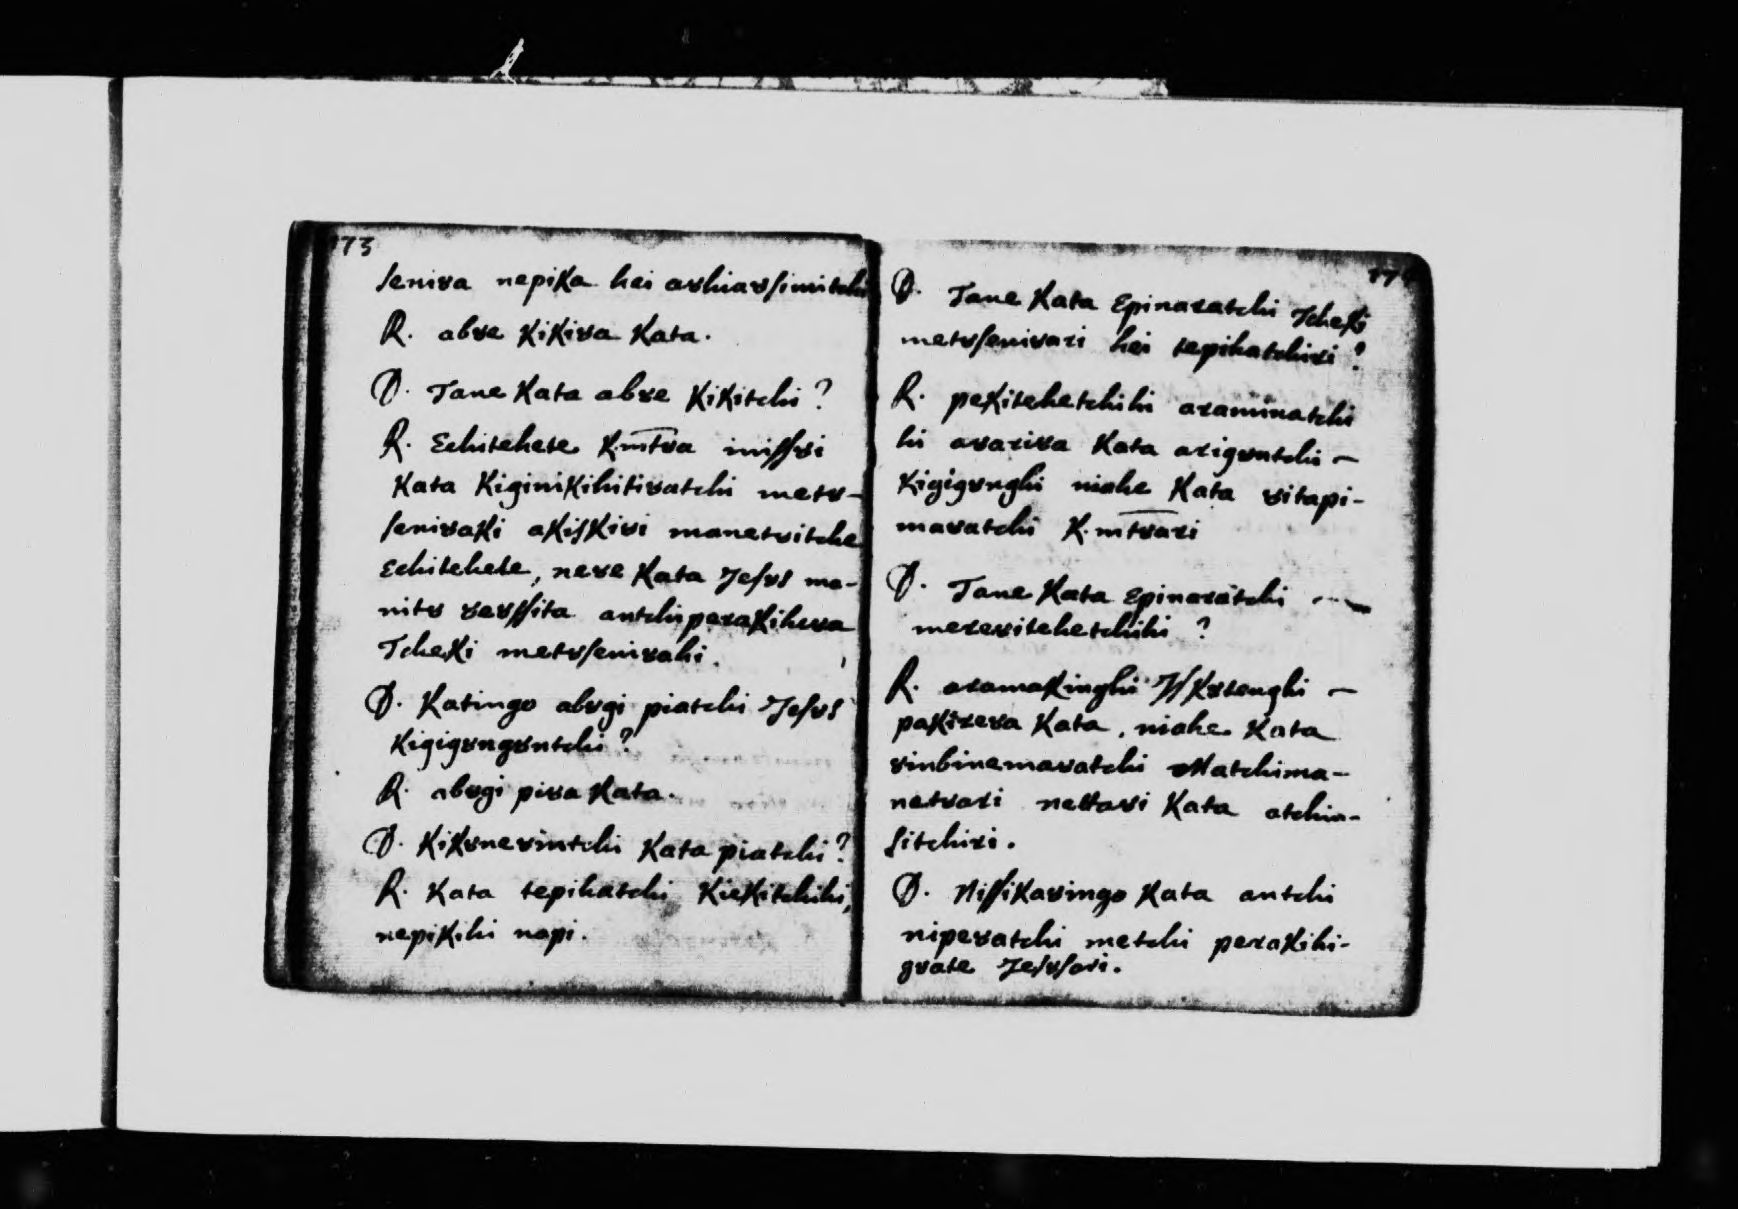 173
seniȣa nepika hei aȣhiaȣsimitchi
R. abȣe kikiȣa kata.
Q. Tane kata abȣe kikitchi?
R. Echitehete K.mtȣa inissȣi
kata kiginikihitiȣatchi metȣ-
seniȣaki akiskiȣi manetȣitche
Echitehete, neȣe kata Jesȣs ma-
nitȣ ȣeȣssita antchiperakihiȣa
Tcheki metȣseniȣahi.
Q. Katingo abȣgi piatchi Jesȣs
kigigȣngȣntchi?
R. abȣgi piȣa kata.
Q. Kikȣneȣintchi kata piatchi?
R. Kata tepihatchi kiekitchihi,
nepikihi napi.
174
Q. Tane kata Epinaratchi Tcheki
metȣseniȣari hei tepihatchiri?
R. pekitehetchihi araminatchi
hi aȣariȣa kata arigȣntchi –
kigigȣnghi niahe kata ȣitapi-
maȣatchi K.mtȣari
Q. Tane Kata Epinaratchi
mereȣitehetchihi?
R. aramakinghi Iskȣtenghi –
pakireȣa kata, niahe kata
ȣinbinemaȣatchi Matchima-
netȣari nettaȣi kata atchin-
sitchiri.
Q. Nissikaȣingo kata antchi
nipeȣatchi metchi perakihi-
gȣate Jesȣsari.